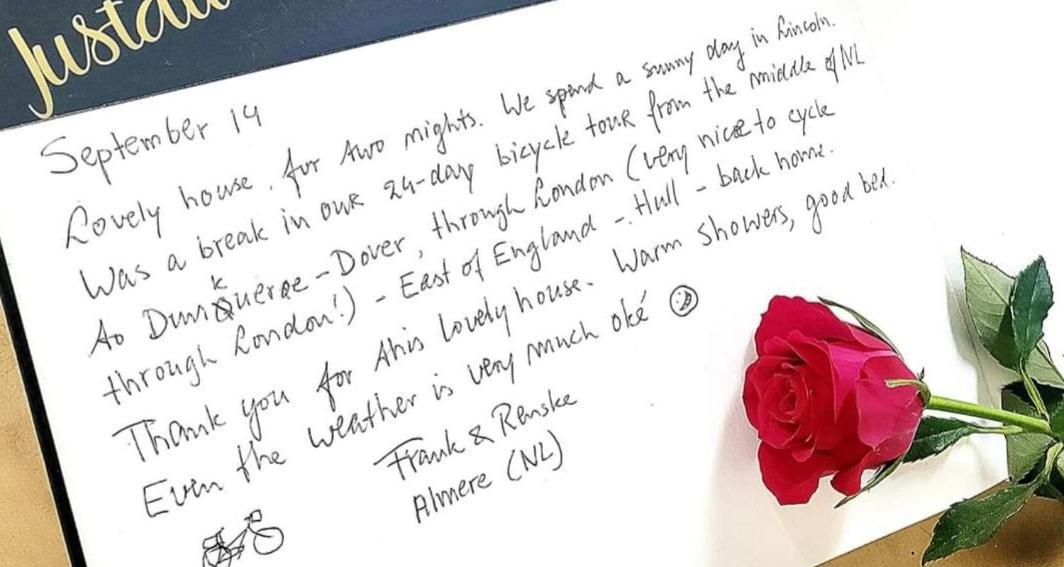 Justa
September 14
Lovely house, for two nights. We spend a sunny day in Lincoln.
Was a break in our 24-day bicycle tour from the middle of NL
to Dunkquerqe - Dover, through London (very nice to cycle
through London!) - East of England - Hull - back home.
Thank you for this lovely house. Warm showers, good bed.
Even the weather is very much oké
Frank & Renske
Almere (NL)